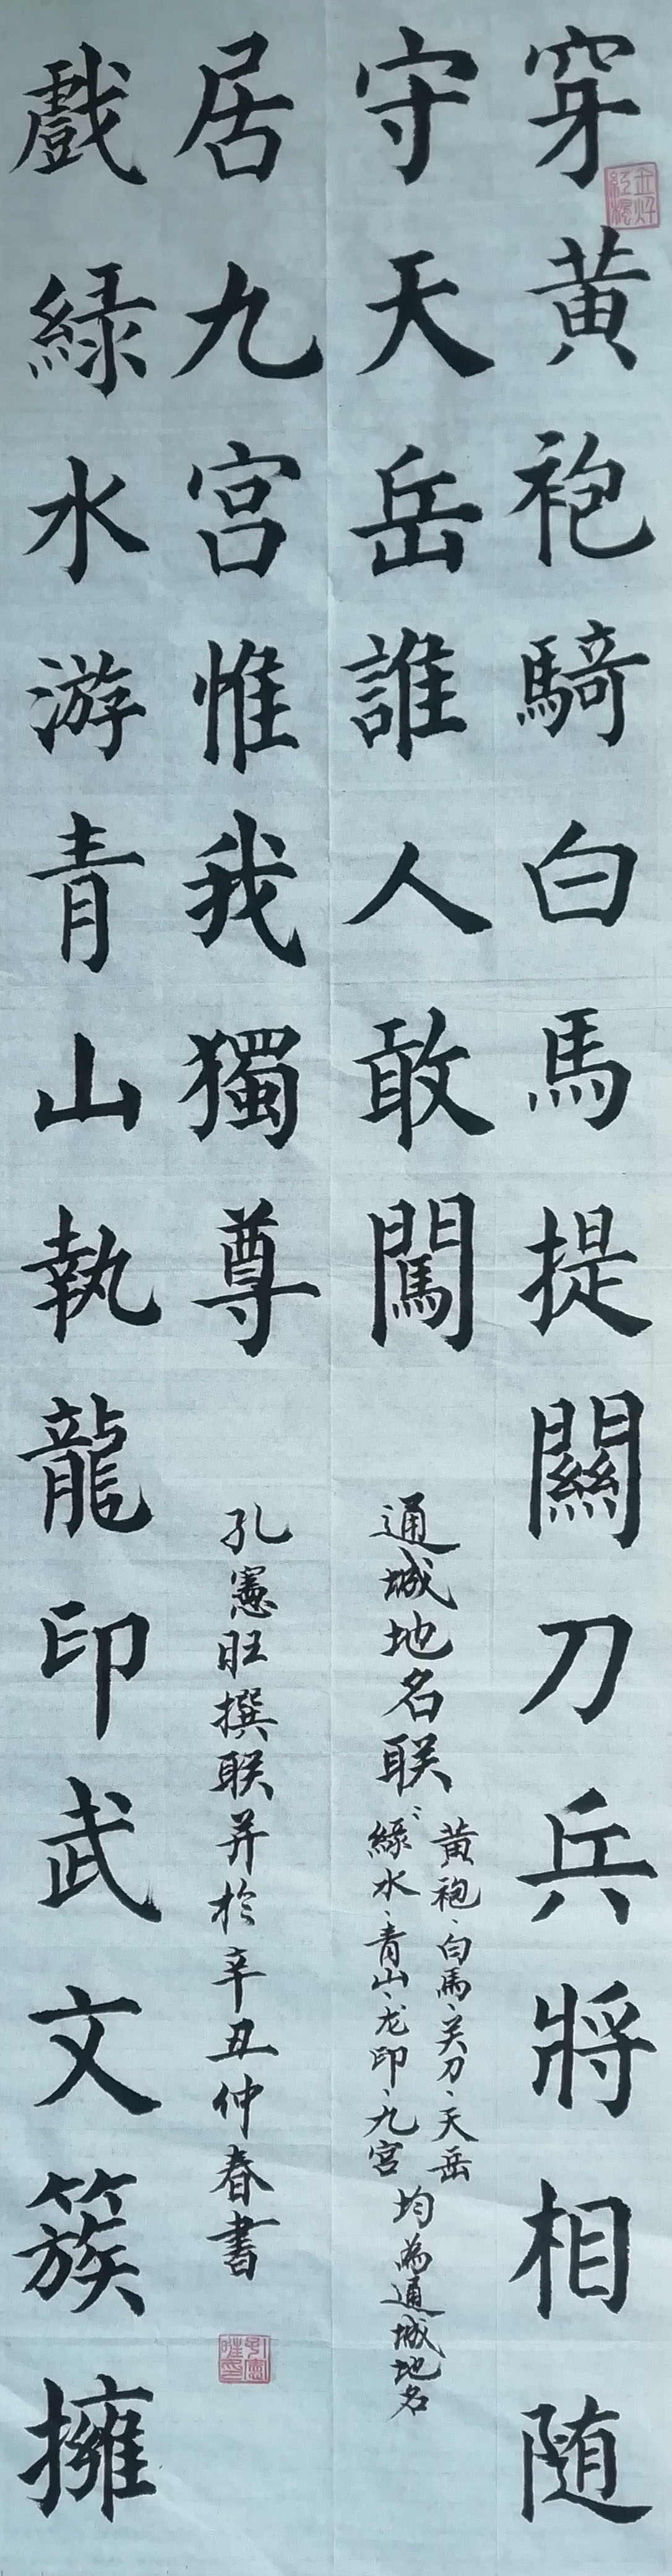 穿黄袍騎白馬提關刀兵將相随
守天岳誰人敢闖
戲緑水游青山執龍印武文簇擁
居九宫惟我獨尊
通城地名联
黄袍、白馬、关刀、天岳
緑水、青山、龙印、九宫
均為通城地名
孔憲旺撰联并於辛丑仲春書